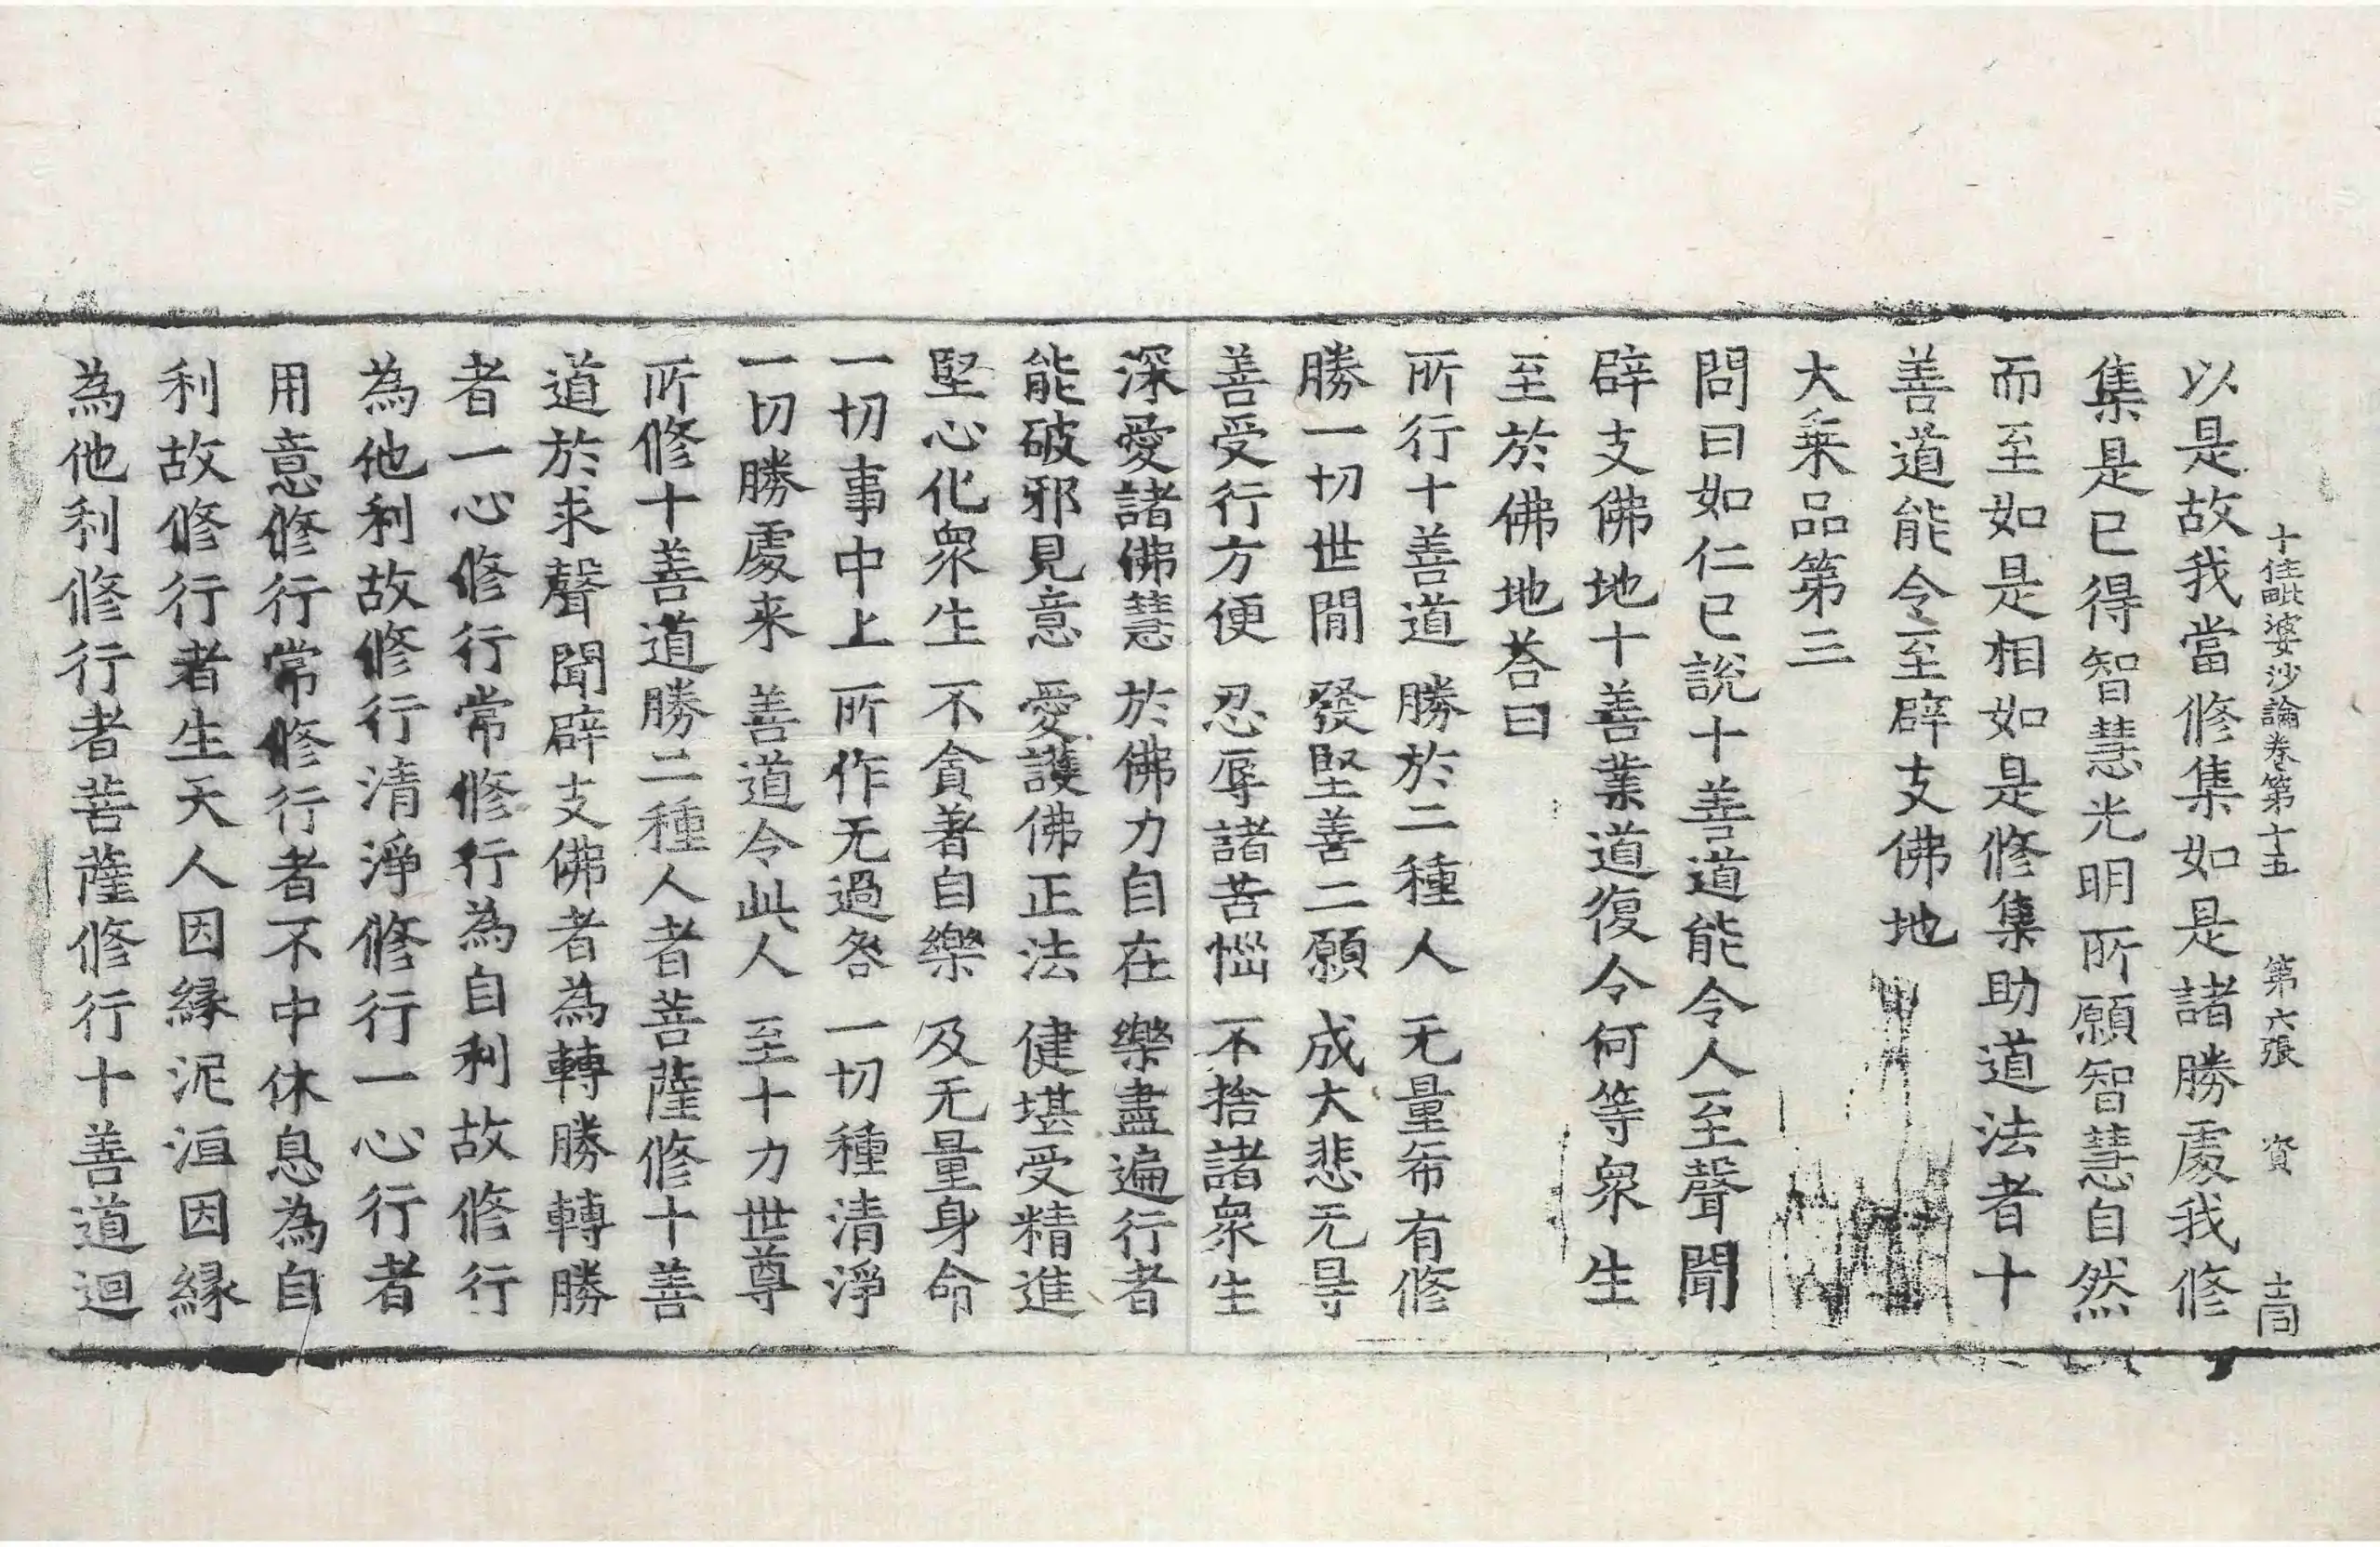 十住毗婆沙論卷第十五　第六張　資
以是故我當修集如是諸勝處我修
集是已得智慧光明所願智慧自然
而至如是相如是修集助道法者十
善道能令至辟支佛地
大乘品第三
問曰如仁已說十善道能令人至聲聞
辟支佛地十善業道復令何等衆生
至於佛地荅曰
所行十善道　勝於二種人　无量希有修
勝一切世閒　發堅善二願　成大悲无㝵
善受行方便　忍辱諸苦惱　不捨諸衆生
深愛諸佛慧　於佛力自在　樂盡遍行者
能破邪見意　愛護佛正法　健堪受精進
堅心化衆生　不貪著自樂　及无量身命
一切事中上　所作无過咎　一切種清淨
一切勝處来　善道令此人　至十力世尊
所修十善道勝二種人者菩薩修十善
道於求聲聞辟支佛者為轉勝轉勝
者一心修行常修行為自利故修行
為他利故修行清淨修行一心行者
用意修行常修行者不中休息為自
利故修行者生天人因縁泥洹因縁
為他利修行者菩薩修行十善道迴